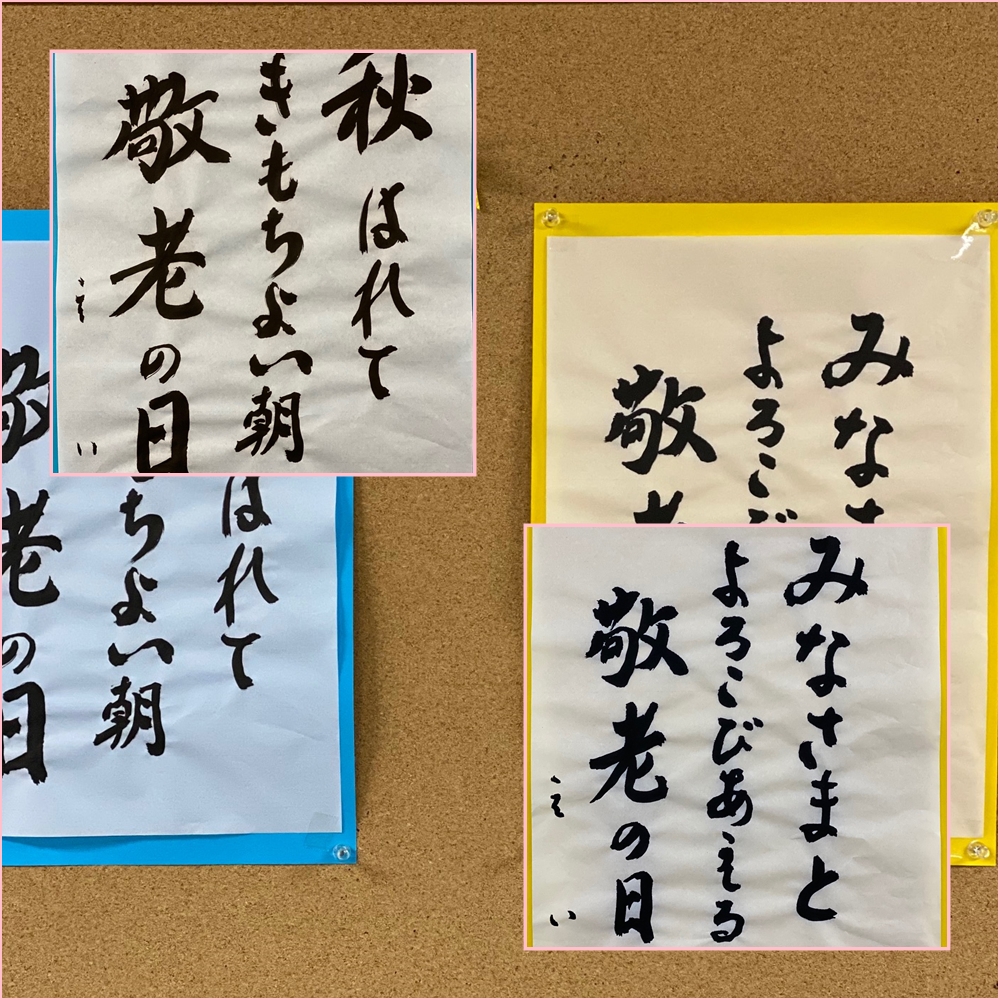 秋はれて
きもちよい朝
敬老の日
えい
はれて
ちよい朝
老の日
みなさ
よろこ
敬
みなさまと
よろこびあえる
敬老の日
えい